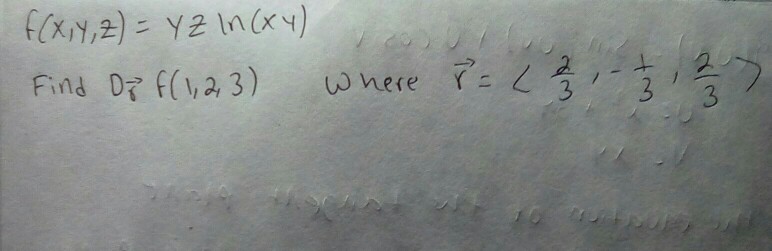 f(x,y,z) = yz ln(xy)
Find D_r⃗ f(1,2,3) where r⃗ = ⟨2/3, -1/3, 2/3⟩